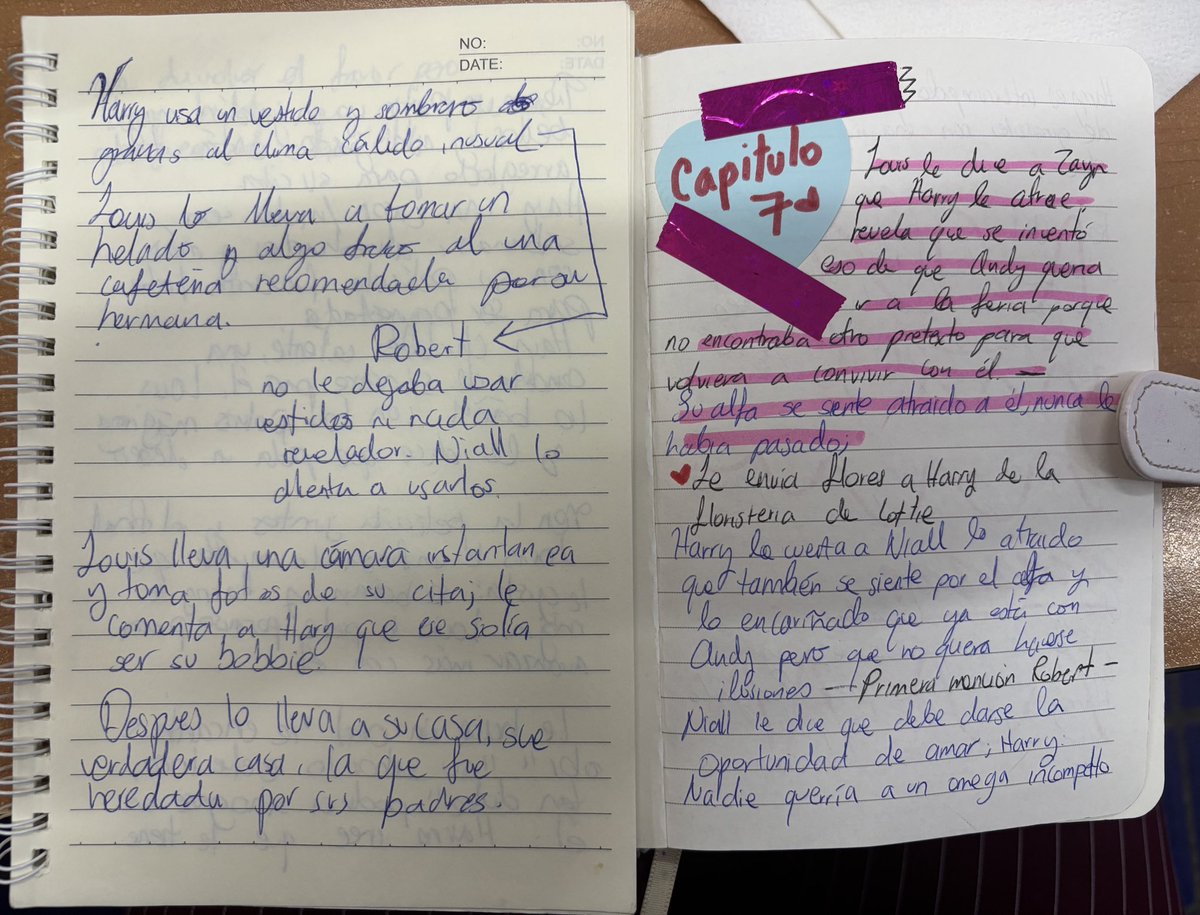 NO:
DATE:
Harry usa un vestido y sombrero
gracias al clima cálido inusual.
Louis lo lleva a tomar un
helado y algo al una
cafetería recomendada por su
hermana.
Robert
no le dejaba usar
vestidos ni nada
revelador. Niall lo
alienta a usarlos.
Louis lleva una cámara instantanea
y toma fotos de su cita; le
comenta a Harry que ese solía
ser su hobbie.
Despues lo lleva a su casa, sue
verdadera casa, la que fue
heredada por sus padres.
Capitulo
7
Louis le dice a Zayn
que Harry le atrae,
revela que se inventó
eso de que Andy queria
ir a la feria porque
no encontraba otro pretexto para que
volviera a convivir con él. —
Su alfa se siente atraido a él, nunca le
habia pasado;
Le envia flores a Harry de la
floristeria de Lottie
Harry le cuenta a Niall lo atraido
que también se siente por el alfa y
lo encariñado que ya está con
Andy pero que no quiera hacerse
ilusiones — Primera mención Robert —
Niall le dice que debe darse la
oportunidad de amar; Harry:
Nadie querría a un omega incompleto